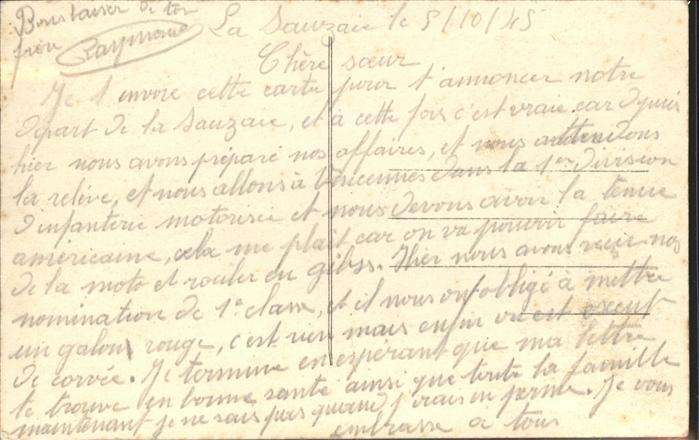 Bons baiser de ton
frère Raymond
La Sauzaie le 5/10/45
Chère sœur
Je t'envoie cette carte pour t'annoncer notre
départ de la Sauzaie, et à cette fois c'est vraie car depuis
hier nous avons préparé nos affaires, et nous attendons
la relève, et nous allons à Vincennes dans la 1er division
d'infanterie motorisée et nous devons avoir la tenue
américaine, cela me plait car on va pouvoir faire
de la moto et rouler en gibs. Hier nous avons reçu nos
nomination de 1e classe, et il nous on obligé à mettre
un galon rouge, c'est rien mais enfin on est exent
de corvée. Je termine en espérant que ma lettre
te trouve en bonne santé ainsi que toute la famille
maintenant je ne sais pas quand j'irais en perme. Je vous
embrasse a tous